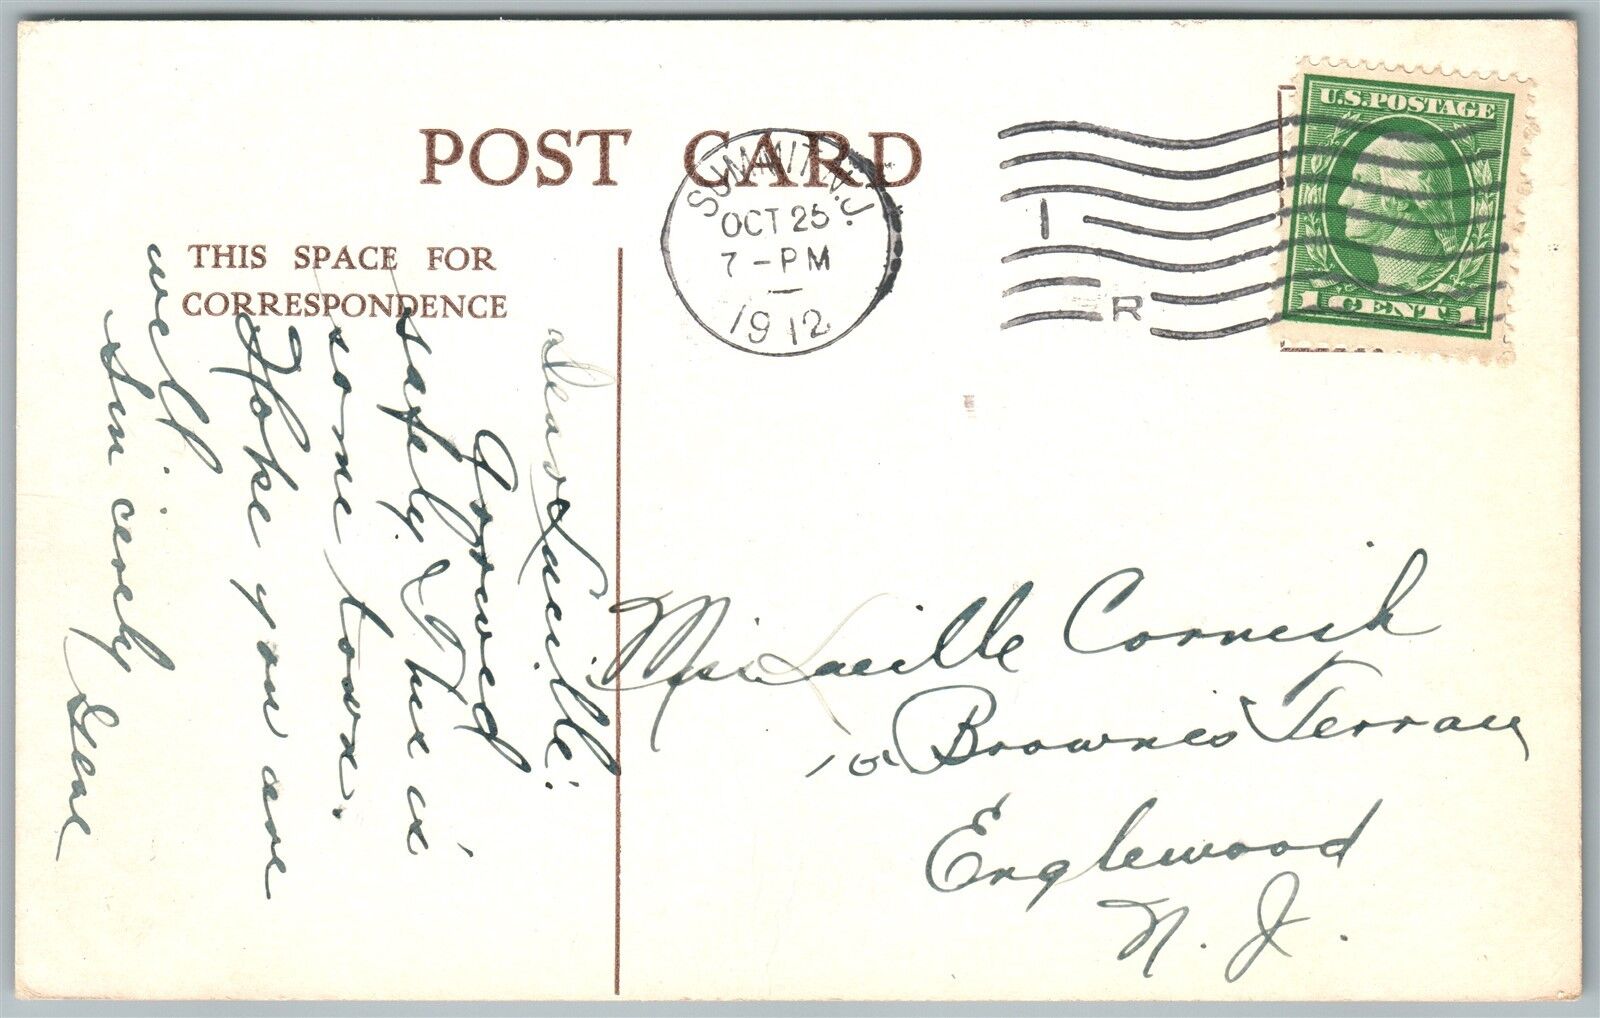 POST CARD
THIS SPACE FOR
CORRESPONDENCE
SUMMIT N.J.
OCT 25
7-PM
1912
1
R
U.S. POSTAGE
1 CENT 1
Dear Lucille:
Arrived
safely. This is
some town.
Hope you are
well.
Sincerely
Miss Lucille Cornish
Browne's Terrace
Englewood
N. J.